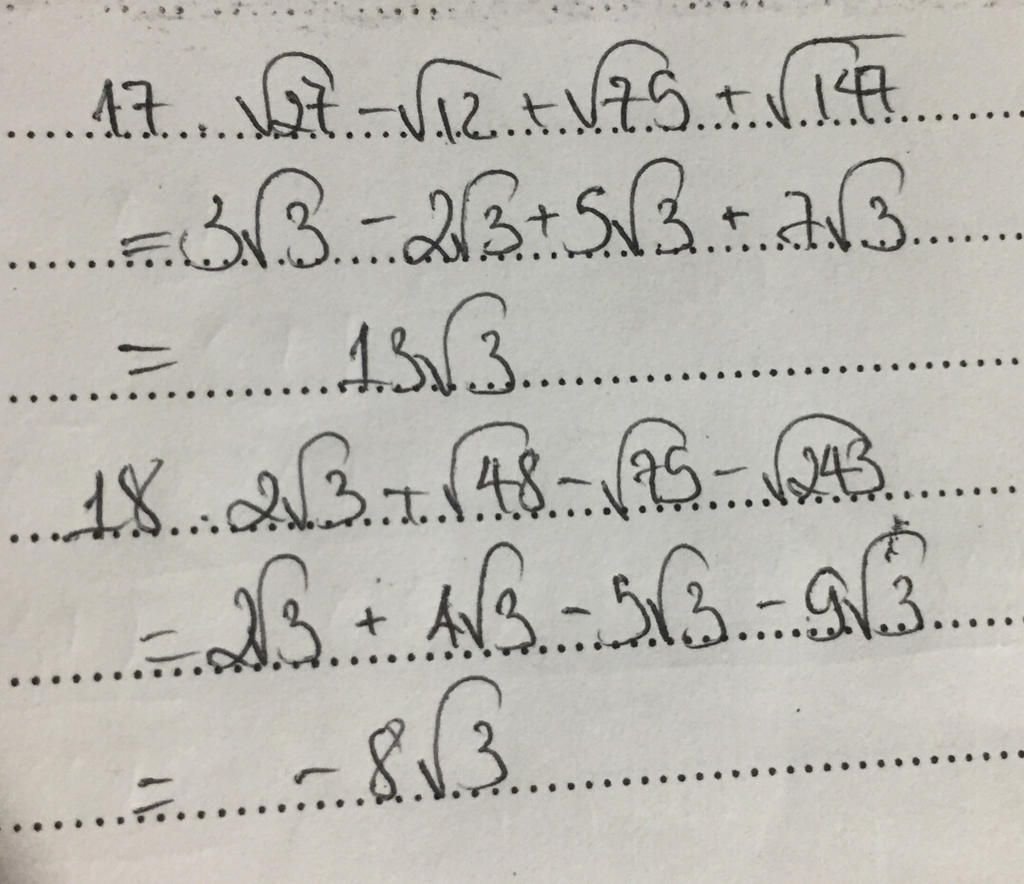 17. √27 - √12 + √75 + √147
= 3√3 - 2√3 + 5√3 + 7√3
= 13√3
18. 2√3 + √48 - √75 - √243
= 2√3 + 4√3 - 5√3 - 9√3
= - 8√3